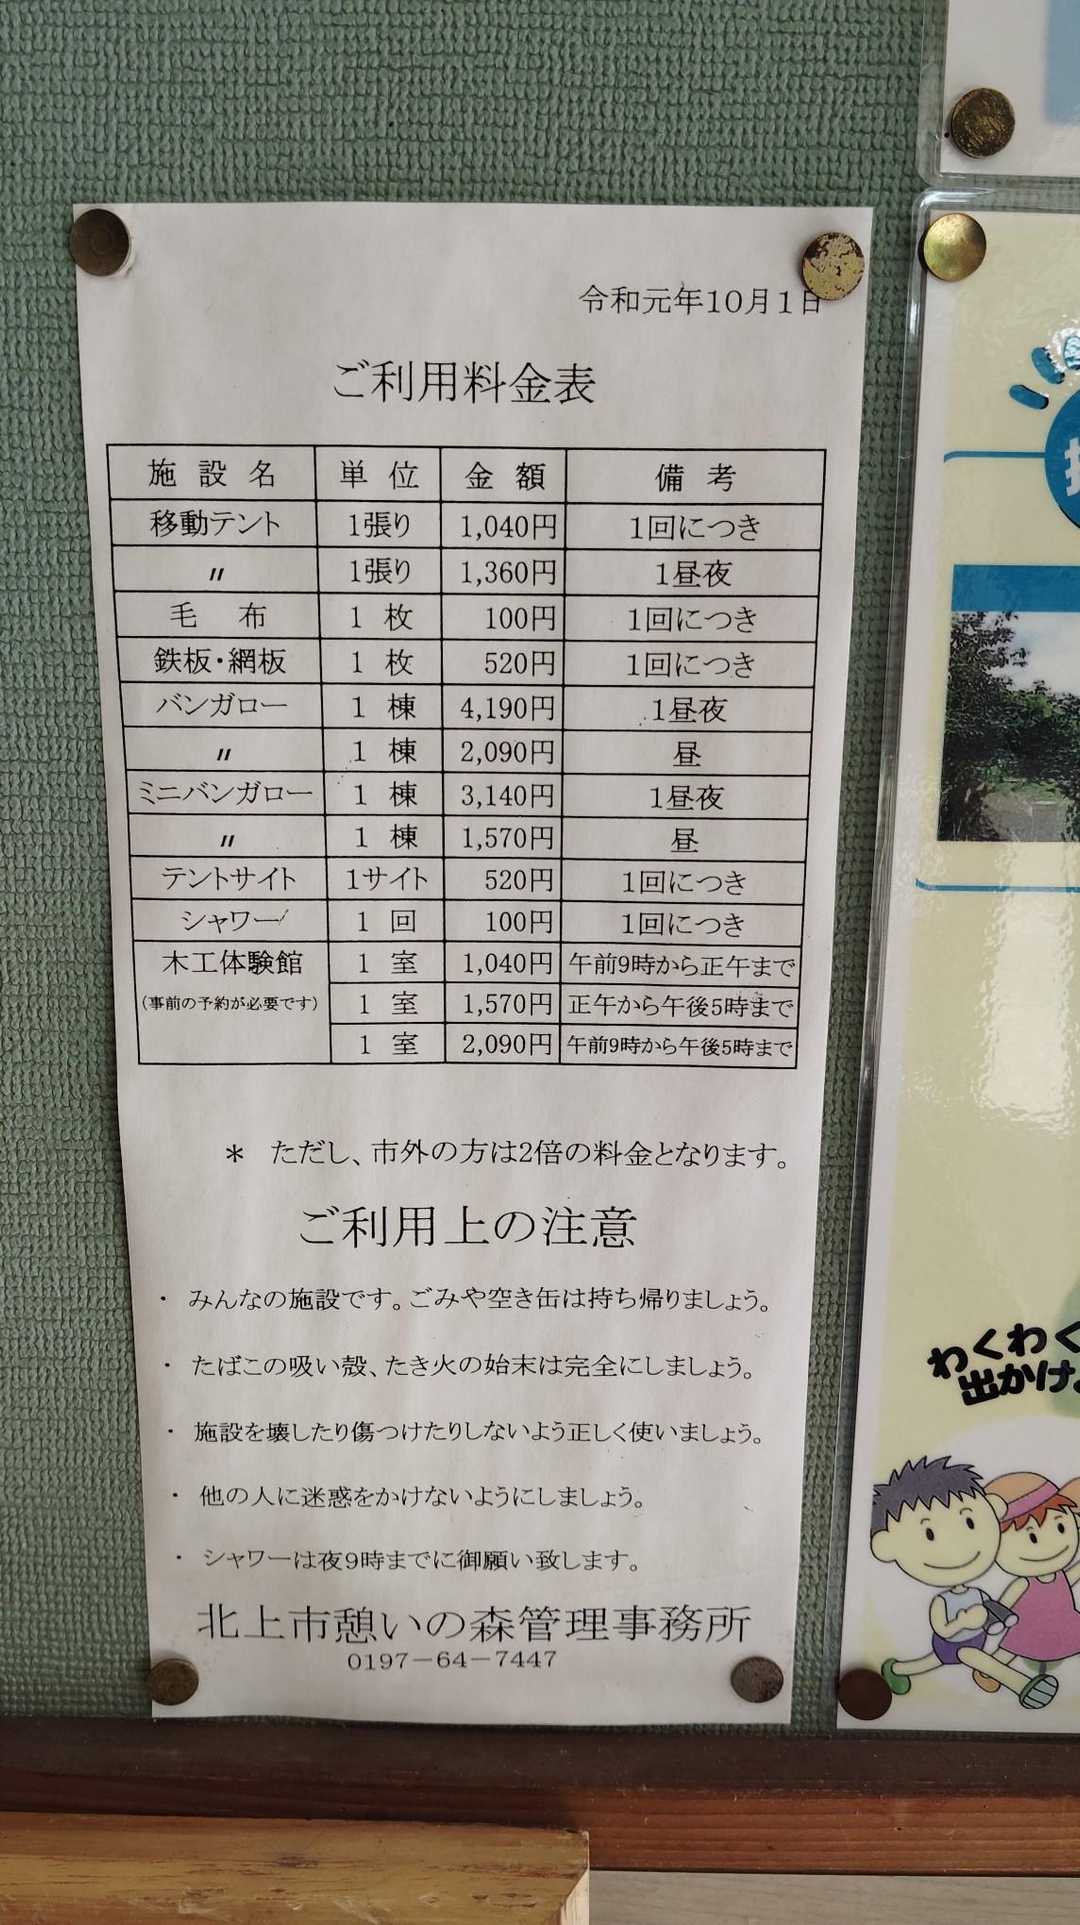 令和元年10月1日
ご利用料金表
施設名 単位 金額 備考
移動テント 1張り 1,040円 1回につき
〃 1張り 1,360円 1昼夜
毛布 1枚 100円 1回につき
鉄板・網板 1枚 520円 1回につき
バンガロー 1棟 4,190円 1昼夜
〃 1棟 2,090円 昼
ミニバンガロー 1棟 3,140円 1昼夜
〃 1棟 1,570円 昼
テントサイト 1サイト 520円 1回につき
シャワー 1回 100円 1回につき
木工体験館 1室 1,040円 午前9時から正午まで
(事前の予約が必要です) 1室 1,570円 正午から午後5時まで
1室 2,090円 午前9時から午後5時まで
＊ ただし、市外の方は2倍の料金となります。
ご利用上の注意
・ みんなの施設です。ごみや空き缶は持ち帰りましょう。
・ たばこの吸い殻、たき火の始末は完全にしましょう。
・ 施設を壊したり傷つけたりしないよう正しく使いましょう。
・ 他の人に迷惑をかけないようにしましょう。
・ シャワーは夜9時までに御願い致します。
北上市憩いの森管理事務所
0197-64-7447
わくわく
出かけ